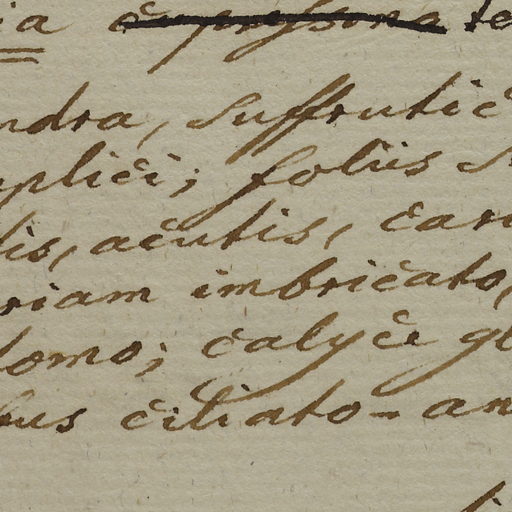 ia te
ndra, suffrutic
mplici; foliis s
lis, acutis, car
riam imbricato,
lomo; calyce gl
bus ciliato-an